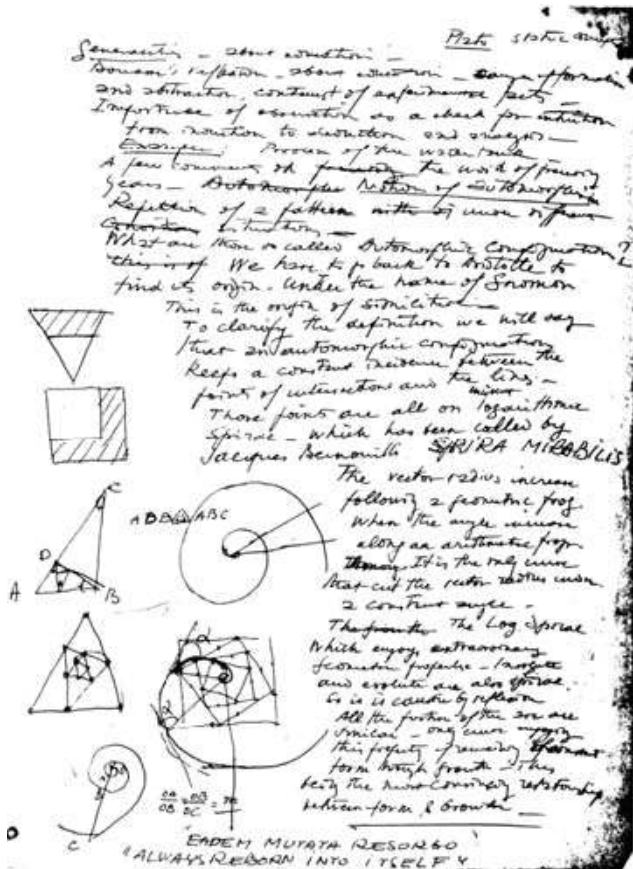 Plato
Generalities - about education -
about education -
and abstraction, content of experimental facts -
Importance of as a check for intuition
from induction to deduction and analysis -
Example: Problem of the water tank
A few comments on the work of previous
years - Automorphic Notion of automorphic
Repetition of a pattern with
situations -
What are then so called Automorphic configuration?
this is of We have to go back to Aristotle to
find its origin. Under the name of Gnomon
This is the origin of similitude
To clarify the definition we will say
that an automorphic configuration
keeps a constant incidence between the
points of intersection and the lines -
Those points are all on logarithmic
spirae - which has been called by
Jacques Bernouilli SPIRA MIRABILIS
The vector radius increase
following a geometric prog.
When the angle increase
along an arithmetic prog.
It is the only curve
that cut the vector radius under
a constant angle -
The Log Spirae
Which enjoys extraordinary
geometric properties - Involute
and evolute are also spirae.
So is its caustic by reflexion
All the portion of the are
similar - only curve
this property of remaining
form through growth - This
being the most convincing relationship
between form & Growth -
C
D
A
B
ADB ABC
OA/OB = OB/OC =
C
"EADEM MUTATA RESORGO
"ALWAYS REBORN INTO ITSELF"